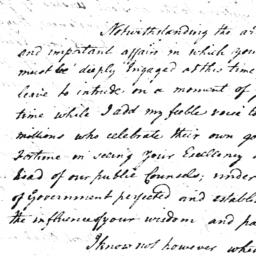 Notwithstanding the
and important affair in which you
must be deeply Engaged at this time
leave to intrude on a moment of
time while I add my feeble voice to
millions who celebrate their own go
Fortune in seeing Your Excellency
head of our public Councels; under
of Government perfected and establis
the influence of your wisdom and pa
I know not however whe